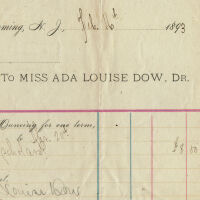 oming, N. J., Feb. 16th 1893
To MISS ADA LOUISE DOW, DR.
Dancing for one term,
$8 00
Louise Dow